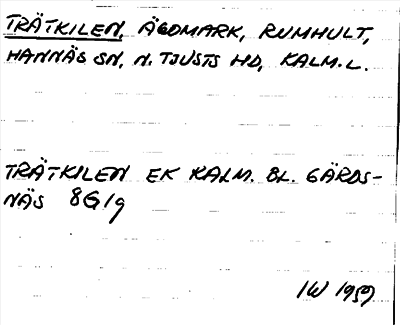 TRÄTKILEN, ÄGOMARK, RUMHULT,
HANNÄS SN, N. TJUSTS HD, KALM. L.
TRÄTKILEN EK KALM. BL. GÄRDS-
NÄS 8G1g
IW 1959